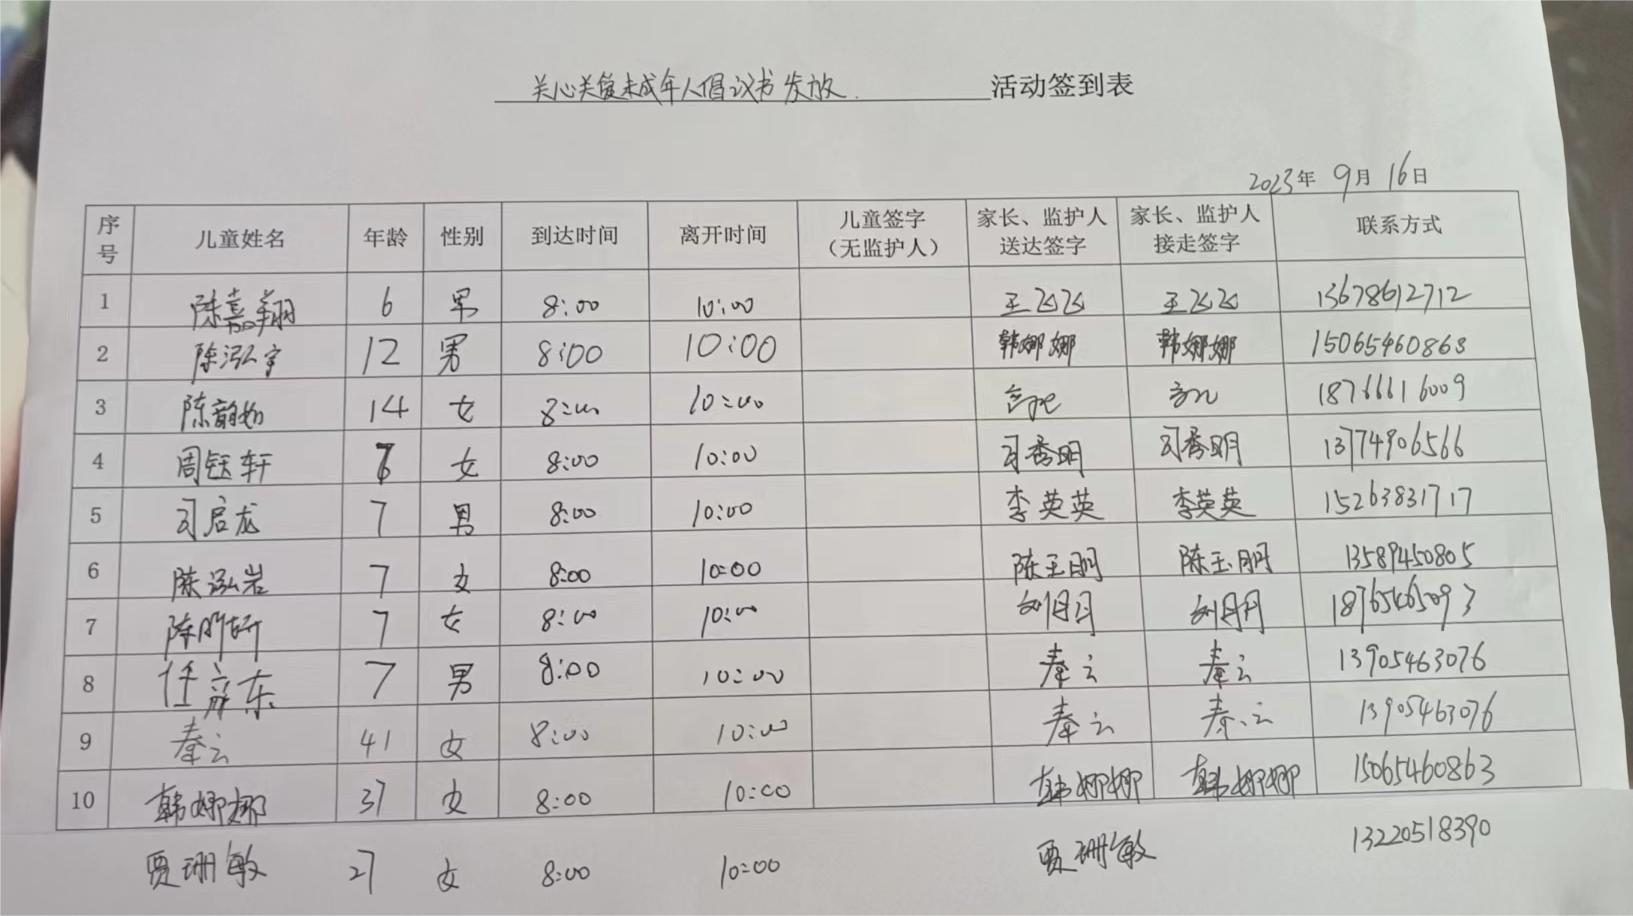 关心关爱未成年人倡议书发放. 活动签到表
2023年 9月 16日
序号 儿童姓名 年龄 性别 到达时间 离开时间 儿童签字（无监护人） 家长、监护人送达签字 家长、监护人接走签字 联系方式
1 陈嘉翔 6 男 8:00 10:00 王飞飞 王飞飞 13678612712
2 陈泓宇 12 男 8:00 10:00 韩娜娜 韩娜娜 15065460863
3 陈韵如 14 女 8:00 10:00 18766616009
4 周钰轩 女 8:00 10:00 司秀明 司秀明 13774906566
5 司启龙 7 男 8:00 10:00 李英英 李英英 15263831717
6 陈泓岩 7 女 8:00 10:00 陈玉朋 陈玉朋 13589450805
7 陈昕妍 7 女 8:00 10:00 刘月月 刘月月 18765465093
8 任彦东 7 男 8:00 10:00 秦云 秦云 13905463076
9 秦云 41 女 8:00 10:00 秦云 秦云 13905463076
10 韩娜娜 37 女 8:00 10:00 韩娜娜 韩娜娜 15065460863
贾珊敏 27 女 8:00 10:00 贾珊敏 13220518390